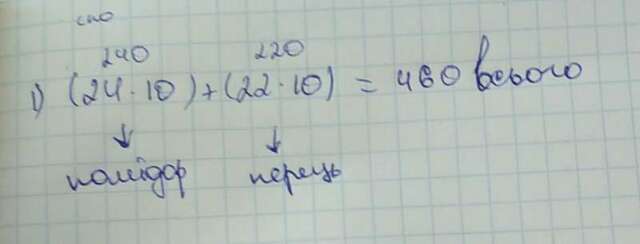 240 220
1) (24·10)+(22·10) = 460 всього
↓ ↓
помідор перець